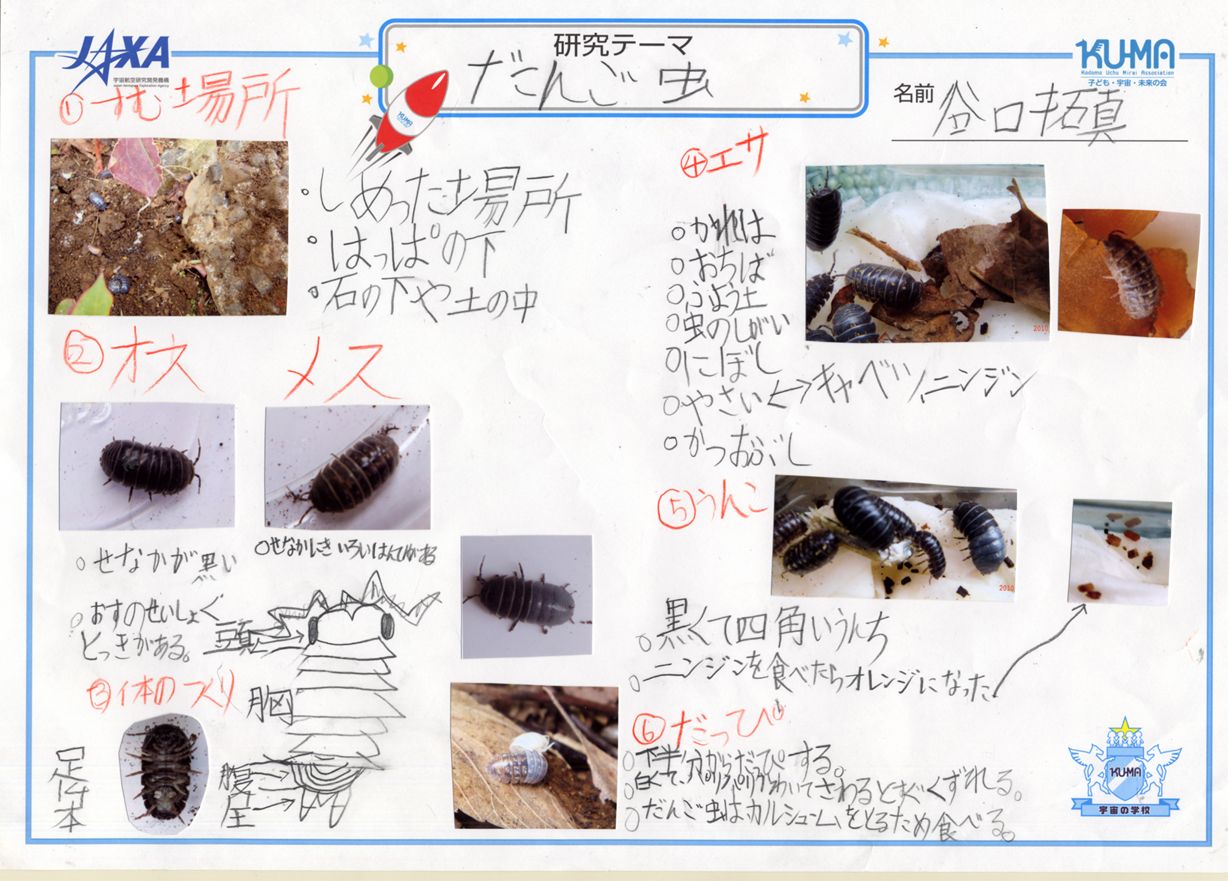 JAXA
宇宙航空研究開発機構
Japan Aerospace Exploration Agency
研究テーマ
だんご虫
KU-MA
Kodomo Uchu Mirai Association
子ども・宇宙・未来の会
名前 谷口拓真
①すむ場所
しめった場所
はっぱの下
石の下や土の中
②オス メス
せなかが黒い
おすのせいしょく
とっきがある。
せなかにきいろいはんてんがある
③体のつくり
頭
胸
腹
足14本
④エサ
かれは
おちば
ふよう土
虫のしがい
にぼし
やさい↔キャベツ、ニンジン
かつおぶし
2010
⑤うんこ
2010
黒くて四角いうんち
ニンジンを食べたらオレンジになった
⑥だっぴ
下半分からだっぴする。
だんご虫はカルシュームをとるため食べる。
KU-MA
宇宙の学校